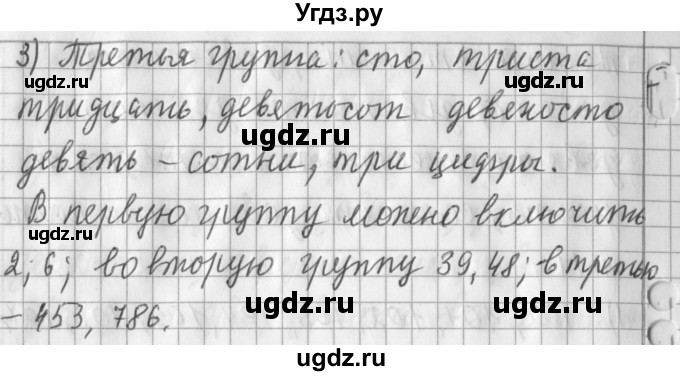 Угдз.ру
3) Третья группа: сто, триста
тридцать, девятьсот девяносто
ugdz.ru ugdz.ru
девять – сотни, три цифры.
В первую группу можно включить
2; 6; во вторую группу 39, 48; в третью
ugdz.ru ugdz.ru
– 453, 786.
ugdz.ru